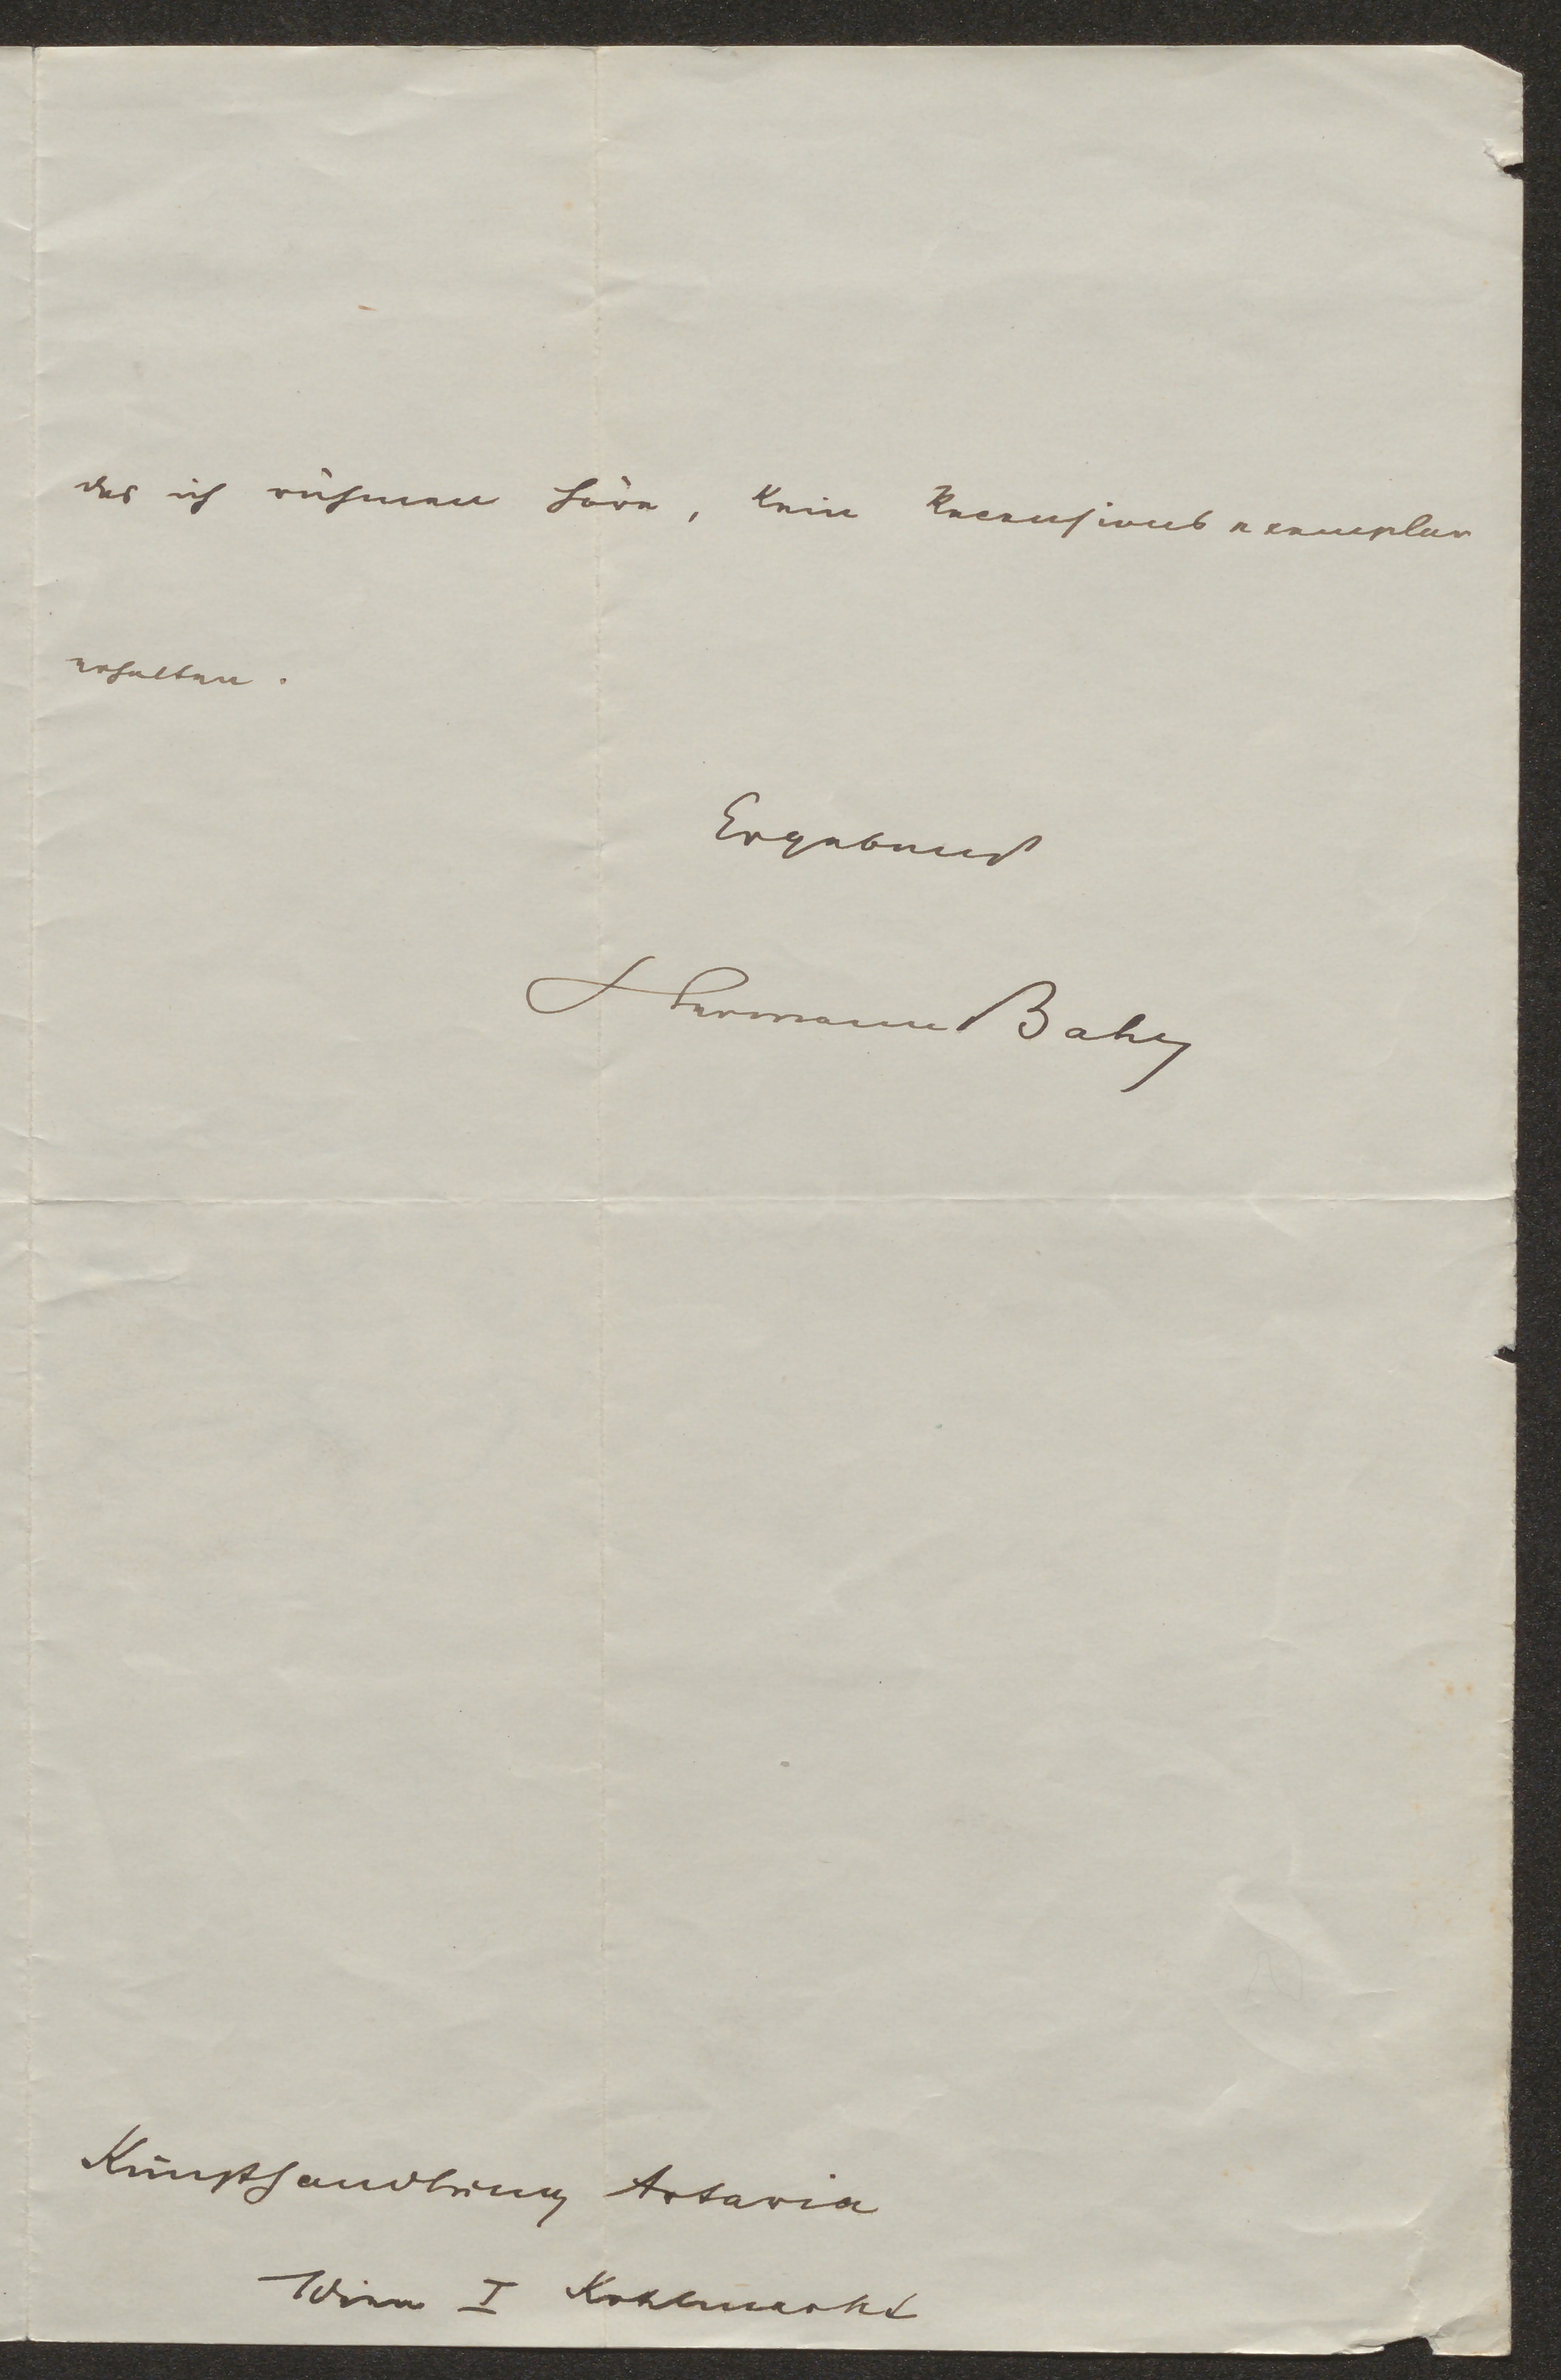 das ich rühmen höre, kein Recensionsexemplar
erhalten.
Ergebenst
Hermann Bahr
Kunsthandlung Artaria
Wien I Kohlmarkt